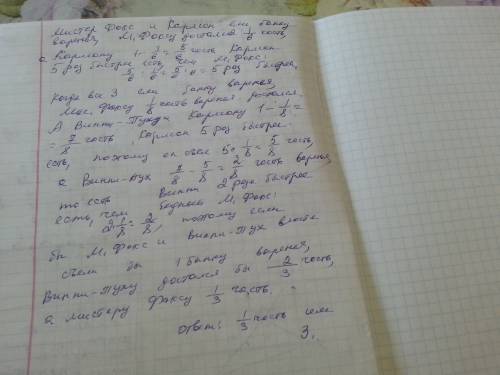 Мистер Фокс и Карлсон ели банку
варенья, М. Фоксу досталось 1/6 часть,
а Карлсону 1 - 1/6 = 5/6 часть Карлсон
5 раз быстрее есть, чем М. Фокс.
5/6 : 1/6 = 5/6 · 6 = 5 раз быстрее,
Когда все 3 ели банку варенья,
Мис. Фоксу 1/8 часть варенья досталось.
А Винни-Пуху и Карлсону 1 - 1/8 =
= 7/8 часть, Карлсон 5 раз быстрее
есть, поэтому он съел 5 · 1/8 = 5/8 часть,
а Винни-Пух 7/8 - 5/8 = 2/8 часть варенья,
то есть Винни 2 раза быстрее
есть, чем бедный М. Фокс:
2 · 1/8 = 2/8, поэтому если
бы М. Фокс и Винни-Пух вместе
съели бы 1 банку варенья,
Винни-Пуху достался бы 2/3 часть,
а мистеру Фоксу 1/3 часть.
ответ: 1/3 часть или
3.